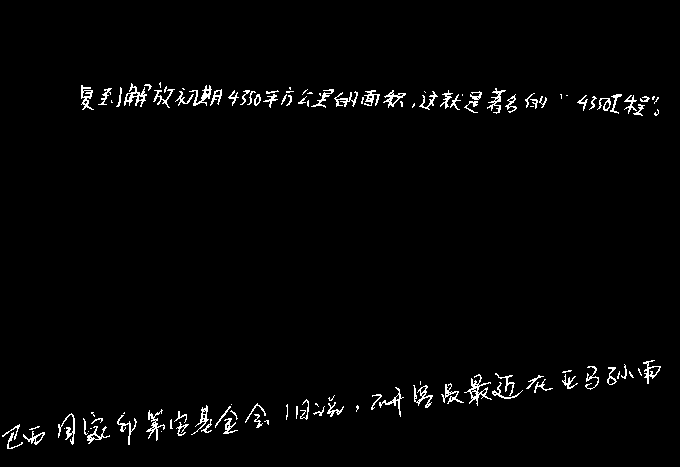 复到解放初期4350平方公里的面积,这就是著名的“4350工程”。
巴西国家印第安基金会1日说,研究员最近在亚马孙雨